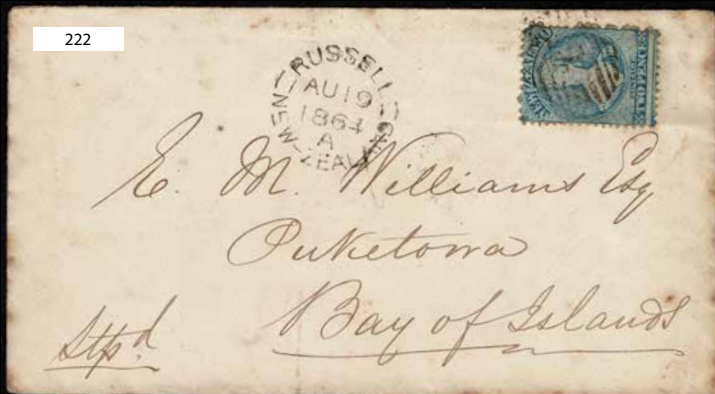 222
RUSSELL
AU 19
1864
A
NEW-ZEALAND
TWO PENCE
E. M. Williams Esq
Puketona
Bay of Islands
Stpd